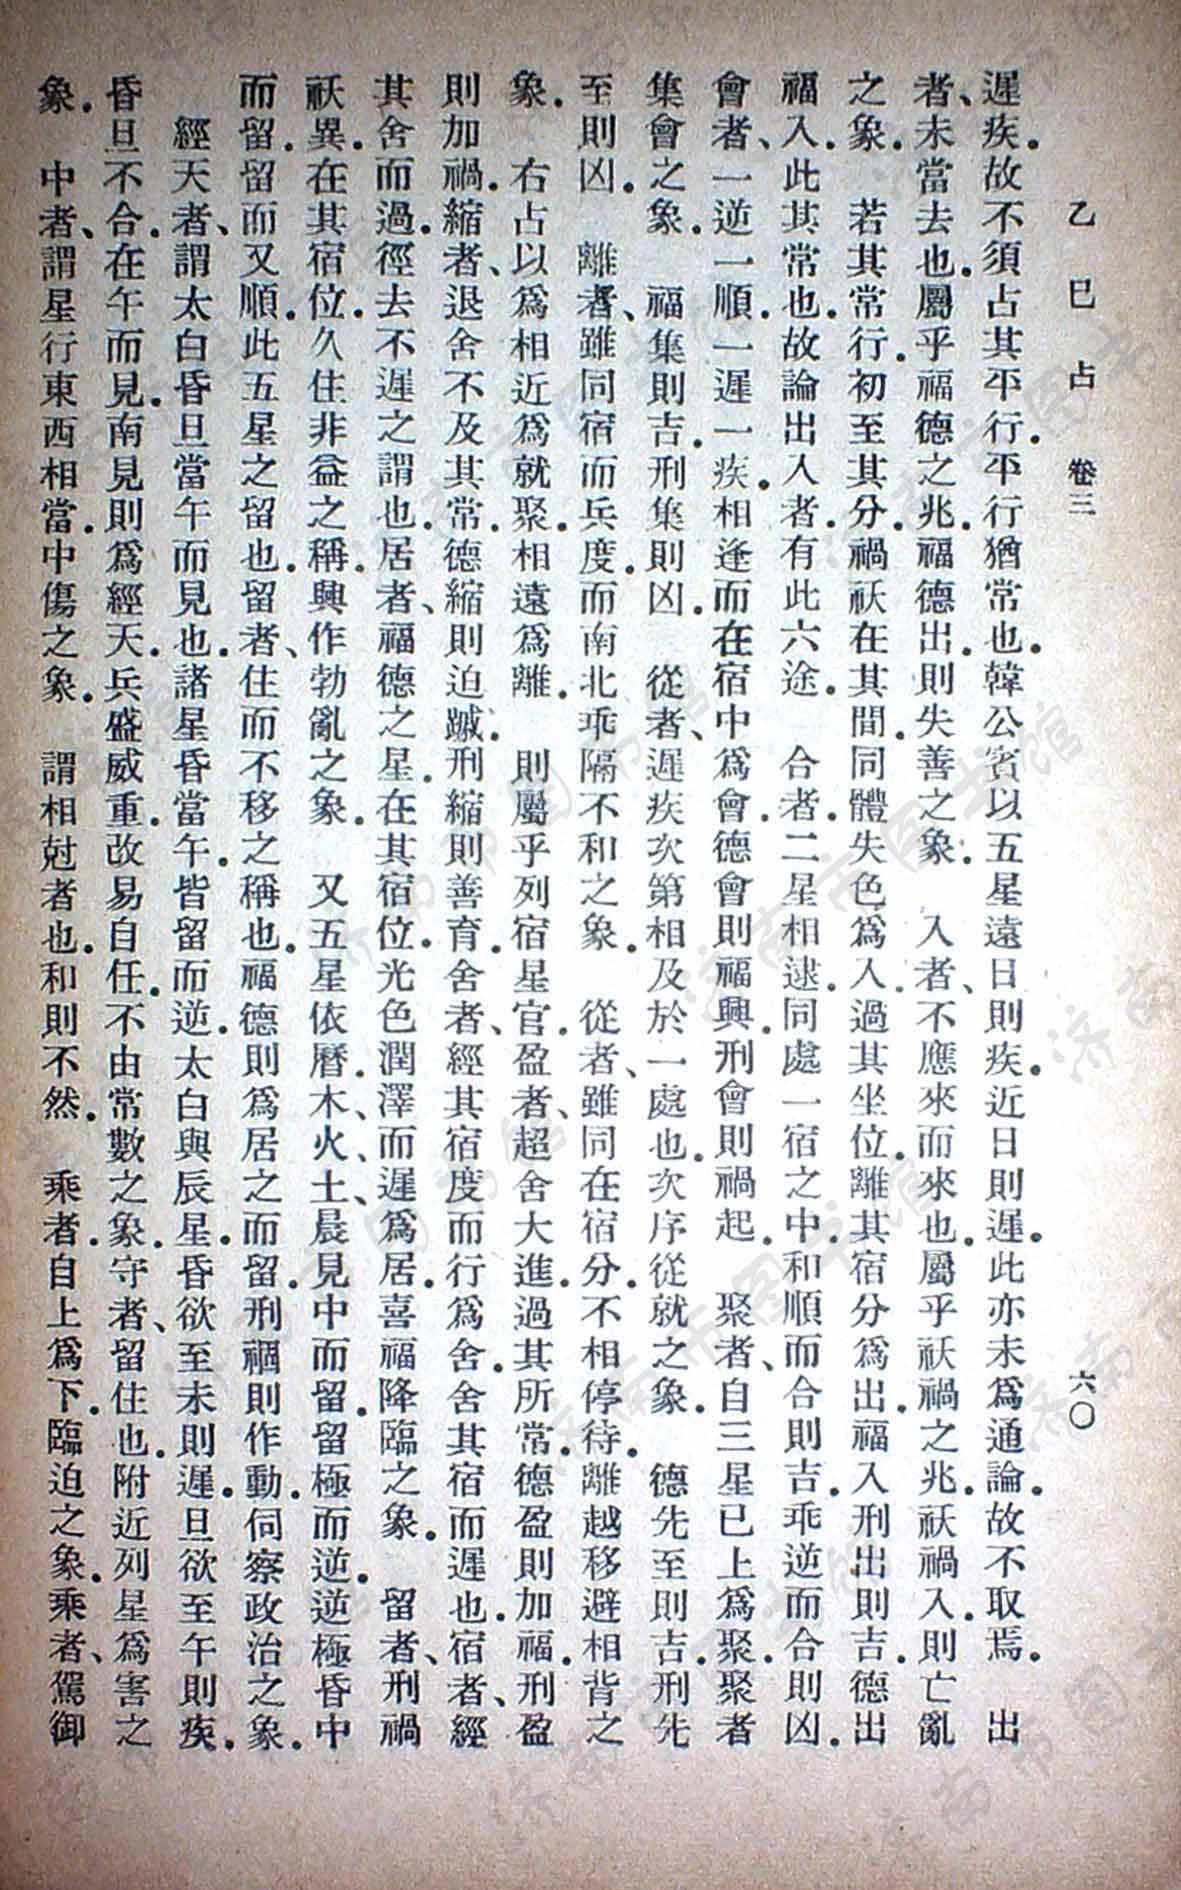 乙巳占 卷三 六〇
遲疾.故不須占其平行.平行猶常也.韓公賓以五星遠日則疾.近日則遲.此亦未爲通論.故不取焉. 出
者、未當去也.屬乎福德之兆.福德出.則失善之象. 入者、不應來而來也.屬乎祅禍之兆.祅禍入.則亡亂
之象. 若其常行.初至其分.禍祅在其間.同體失色爲入.過其坐位.離其宿分爲出.福入刑出則吉.德出
福入.此其常也.故論出入者.有此六途. 合者.二星相逮.同處一宿之中.和順而合則吉.乖逆而合則凶.
會者、一逆一順.一遲一疾.相逢而在宿中爲會.德會則福興.刑會則禍起. 聚者、自三星已上爲聚.聚者
集會之象. 福集則吉.刑集則凶. 從者、遲疾次第.相及於一處也.次序從就之象. 德先至則吉.刑先
至則凶. 離者、雖同宿而兵度.而南北乖隔不和之象. 從者、雖同在宿分.不相停待.離越移避相背之
象. 右占以爲相近爲就聚.相遠爲離. 則屬乎列宿星官.盈者、超舍大進.過其所常.德盈則加福.刑盈
則加禍.縮者、退舍不及其常.德縮則迫蹴.刑縮則善育.舍者、經其宿度而行爲舍.舍其宿而遲也.宿者、經
其舍而過.徑去不遲之謂也.居者、福德之星.在其宿位.光色潤澤而遲爲居.喜福降臨之象. 留者、刑禍
祅異.在其宿位.久住非益之稱.興作勃亂之象. 又五星依曆.木、火、土、晨見中而留.留極而逆.逆極昏中
而留.留而又順.此五星之留也.留者、住而不移之稱也.福德則爲居之而留.刑禍則作動.伺察政治之象.
經天者、謂太白昏旦當午而見也.諸星昏當午.皆留而逆.太白與辰星.昏欲至未則遲.旦欲至午則疾.
昏旦不合.在午而見.南見則爲經天.兵盛威重.改易自任.不由常數之象.守者、留住也.附近列星爲害之
象. 中者、謂星行東西相當.中傷之象. 謂相尅者也.和則不然. 乘者.自上爲下.臨迫之象.乘者、駕御